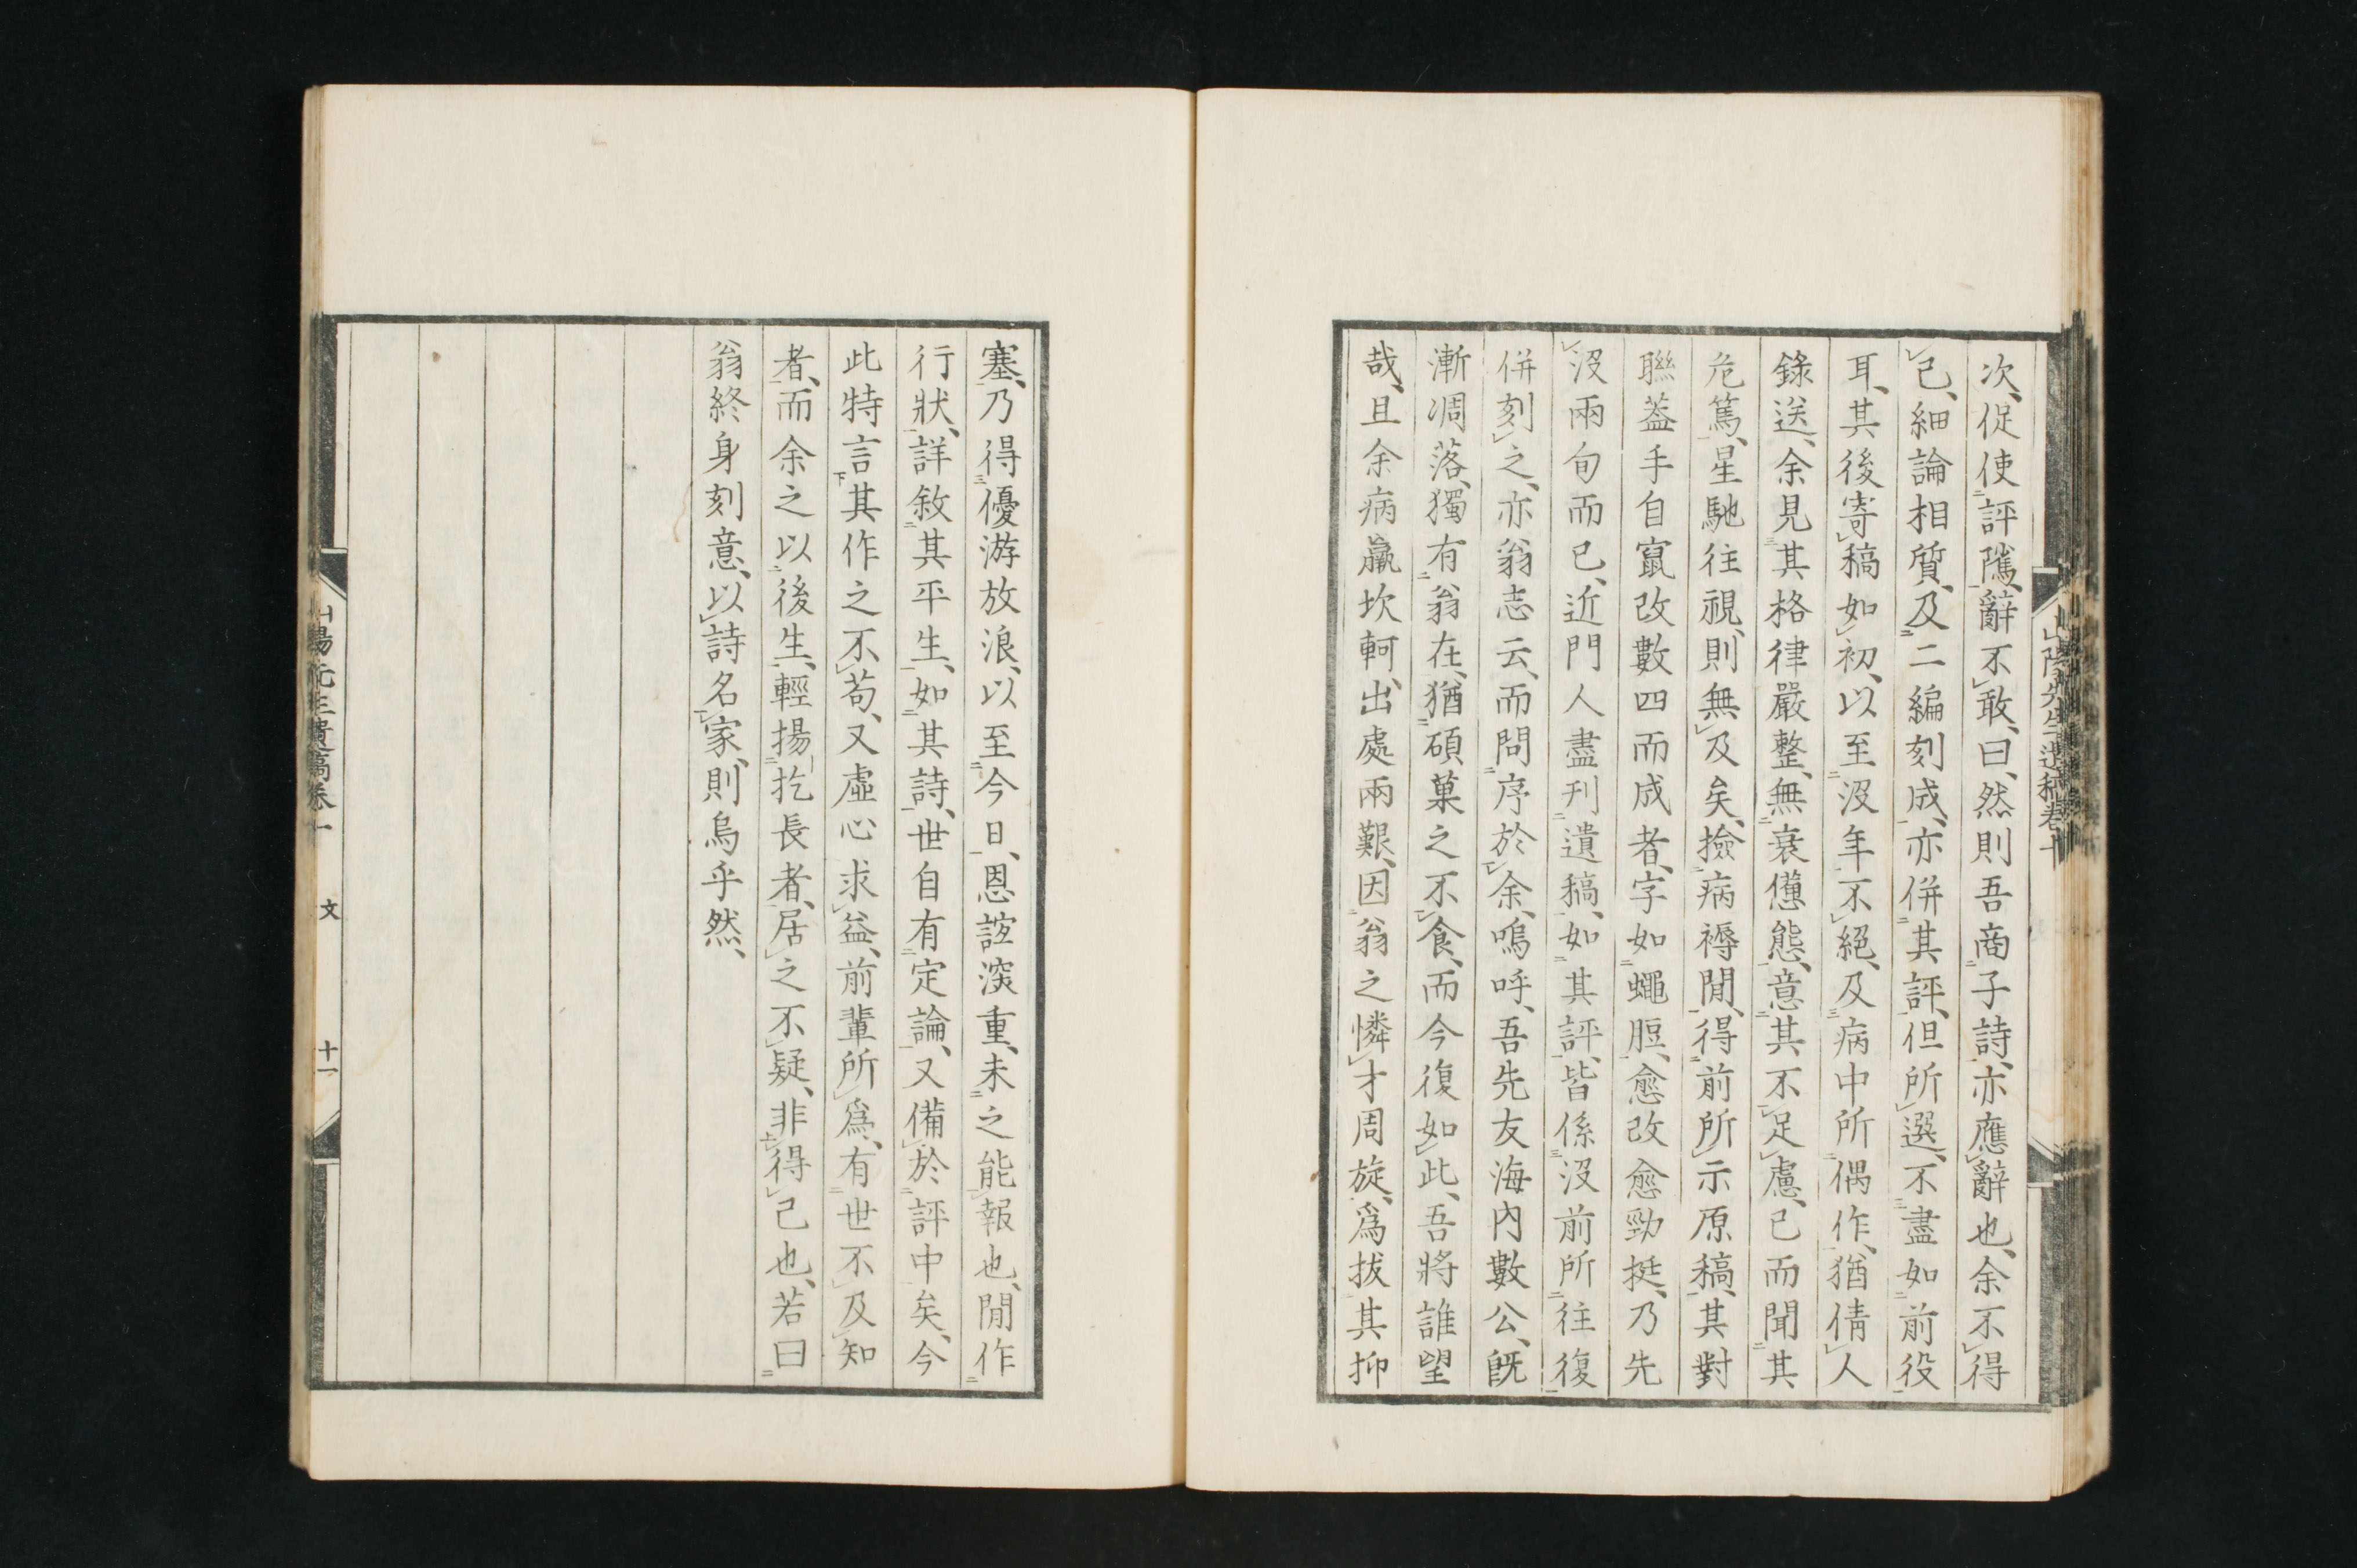 次、促使評隲、辭不敢、曰、然則吾商子詩、亦應辭也、余不得
已、細論相質、及二編刻成、亦併其評、但所選、不盡如前役
耳、其後寄稿如初、以至沒年不絕、及病中所偶作、猶倩人
錄送、余見其格律嚴整、無衰憊態、意其不足慮、已而聞其
危篤、星馳往視、則無及矣、撿病褥間、得前所示原稿、其對
聯蓋手自竄改數四而成者、字如蠅脰、愈改愈勁挺、乃先
沒兩旬而已、近門人盡刊遺稿、如其評、皆係沒前所往復
併刻之、亦翁志云、而問序於余、嗚呼、吾先友海內數公、旣
漸凋落、獨有翁在、猶碩菓之不食、而今復如此、吾將誰望
哉、且余病羸坎軻、出處兩艱、因翁之憐才周旋、爲拔其抑
塞、乃得優游放浪、以至今日、恩誼深重、未之能報也、閒作
行狀、詳敘其平生、如其詩、世自有定論、又備於評中矣、今
此特言其作之不苟、又虛心求益、前輩所爲、有世不及知
者、而余之以後生、輕揚扢長者、居之不疑、非得已也、若曰
翁終身刻意、以詩名家、則烏乎然、
山陽先生遺稿卷十
文
十一